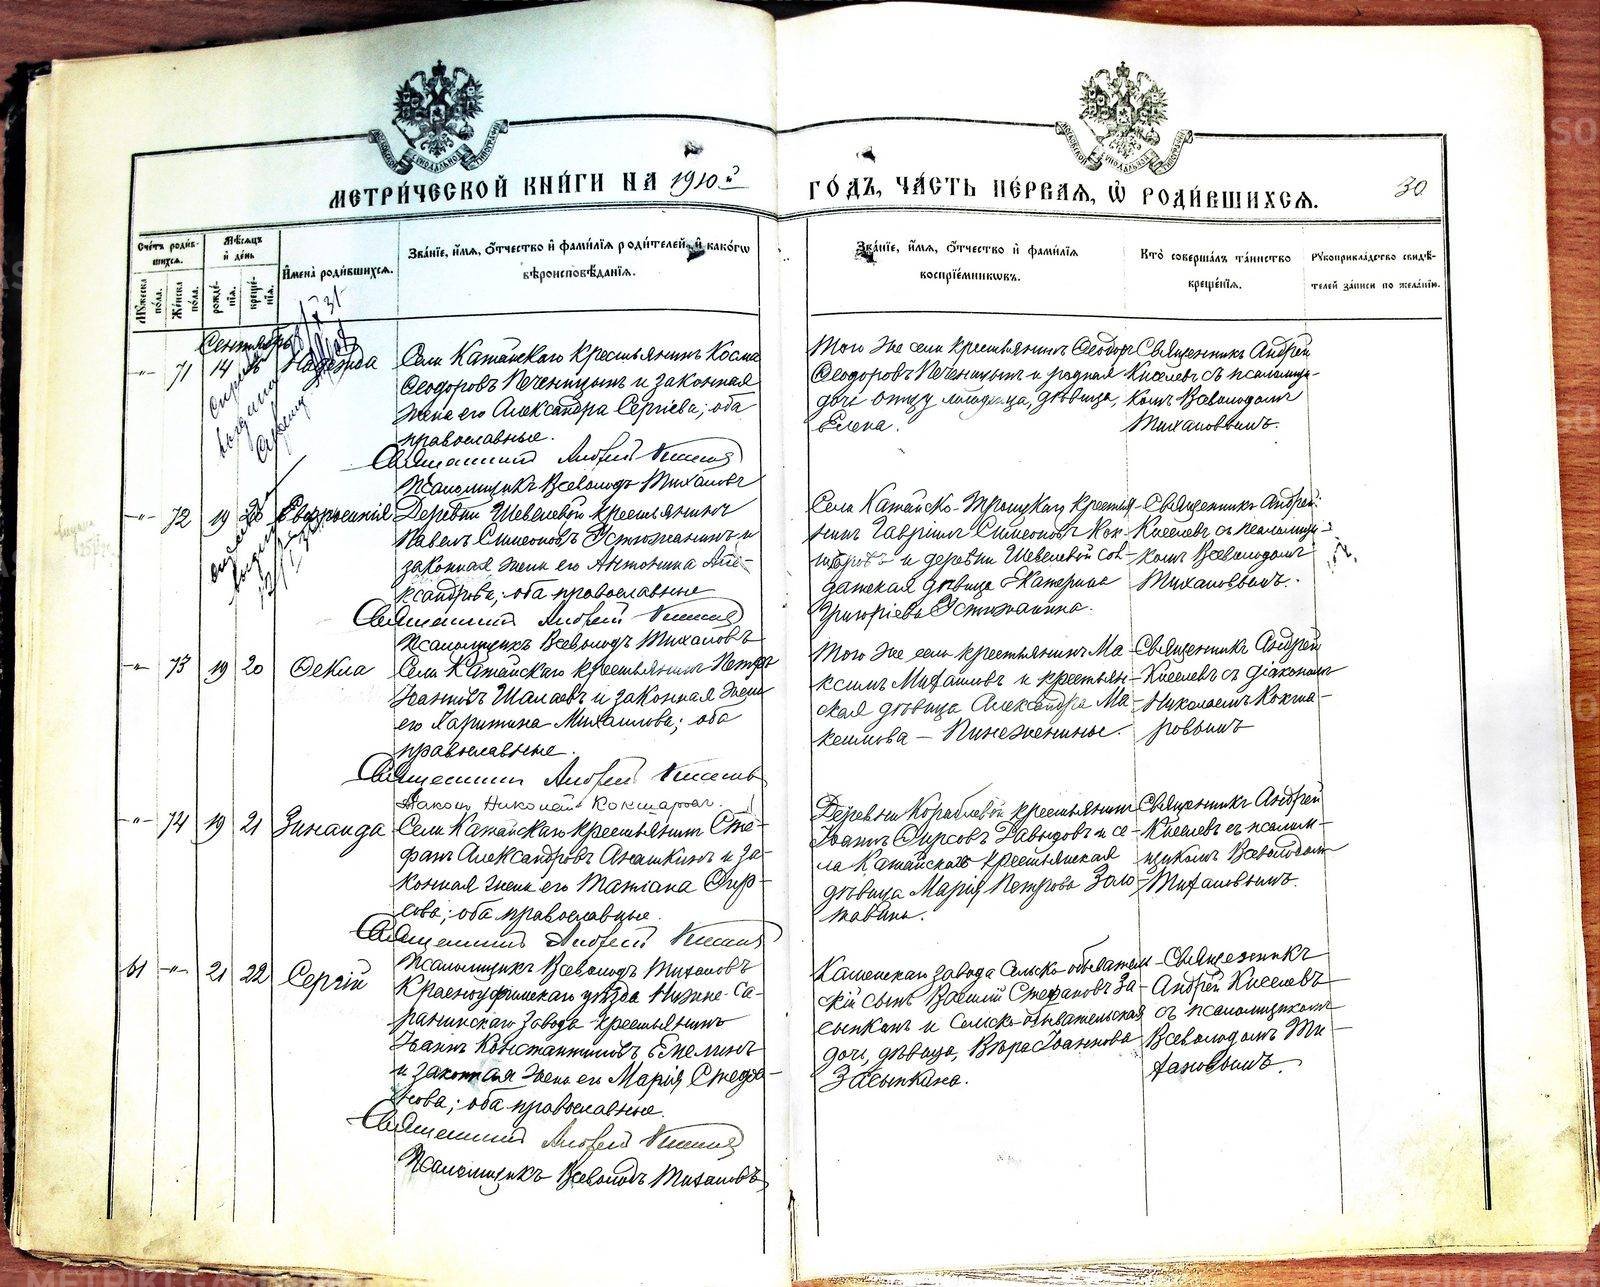 МЕТРИ́ЧЕСКОЙ КНИ́ГИ НА 1910й ГО́ДЪ, ЧА́СТЬ ПЕ́РВАЯ, Ѡ РОДИ́ВШИХСЯ.
30
Сче́тъ роди́в-
шихся.
Му́жеска по́ла.
Же́нска по́ла.
Мѣ́сяцъ и де́нь
рожде́-
нїя.
креще́-
нїя.
И́мена̀ роди́вшихся.
Зва́нїе, и́мя, о́тчество и фами́лїя роди́телей, и како́гѡ
вѣроисповѣ́данїя.
Зва́нїе, и́мя, о́тчество и фами́лїя
воспрїе́мникѡвъ.
Кто̀ соверша́лъ та́инство
креще́нїя.
Рꙋкоприкла́дство свидѣ́-
телей за́писи по жела́нїю.
Сентябрь
-"- 71 14 Надежда
Села Катайскаго крестьянинъ Косма
Ѳеодоровъ Печеницынъ и законная
жена его Александра Сергіева; оба
православные.
Священникъ Андрей Киселевъ
Псаломщикъ Всеволодъ Тихановъ
Того же села крестьянинъ Ѳеодоръ
Ѳеодоровъ Печеницынъ и родная
дочь отцу младенца, дѣвица,
Елена.
Священникъ Андрей
Киселевъ съ псаломщи-
комъ Всеволодомъ
Тихановымъ.
-"- 72 19 20 Евфросинія
Деревни Шевелевой крестьянинъ
Павелъ Симеоновъ Устюжанинъ и
законная жена его Антонина Але-
ксандрова; оба православные
Священникъ Андрей Киселевъ
Псаломщикъ Всеволодъ Тихановъ
Села Катайско-Троицкаго крестья-
нинъ Гавріилъ Симеоновъ Кок-
шаровъ и деревни Шевелевой сол-
датская дѣвица Екатерина
Григоріева Устюжанина.
Священникъ Андрей
Киселевъ съ псаломщи-
комъ Всеволодомъ
Тихановымъ.
-"- 73 19 20 Ѳекла
Села Катайскаго крестьянинъ Петръ
Іоанновъ Шалаевъ и законная жена
его Харитина Михаилова; оба
православные.
Священникъ Андрей Киселевъ
Діаконъ Николай Кокшаровъ.
Того же села крестьянинъ Ма-
ксимъ и крестьян-
ская дѣвица Александра Ма-
ксимова –
Священникъ Андрей
Киселевъ съ діакономъ
Николаемъ Кокша-
ровымъ
-"- 74 19 21 Зинаида
Села Катайскаго крестьянинъ Сте-
фанъ Александровъ Анашкинъ и за-
конная жена его Татіана Фир-
сова; оба православные.
Священникъ Андрей Киселевъ
Псаломщикъ Всеволодъ Тихановъ
Деревни Кораблевой крестьянинъ
Іоаннъ Фирсовъ Давыдовъ и се-
ла Катайскаго крестьянская
дѣвица Марія Петрова
Священникъ Андрей
Киселевъ съ псалом-
щикомъ Всеволодомъ
Тихановымъ.
61 -"- 21 22 Сергій
Красноуфимскаго уѣзда Нижне-Са-
ранинскаго завода крестьянинъ
Іоаннъ Константиновъ Емелинъ
и законная жена его Марія Стефа-
нова; оба православные.
Священникъ Андрей Киселевъ
Псаломщикъ Всеволодъ Тихановъ
Каменскаго завода сельско-обыватель-
скій сынъ Василій Стефановъ За-
сыпкинъ и сельско-обывательская
дочь, дѣвица, Вѣра Іоаннова
Засыпкина.
Священникъ
Андрей Киселевъ
съ псаломщикомъ
Всеволодомъ Ти-
хановымъ.